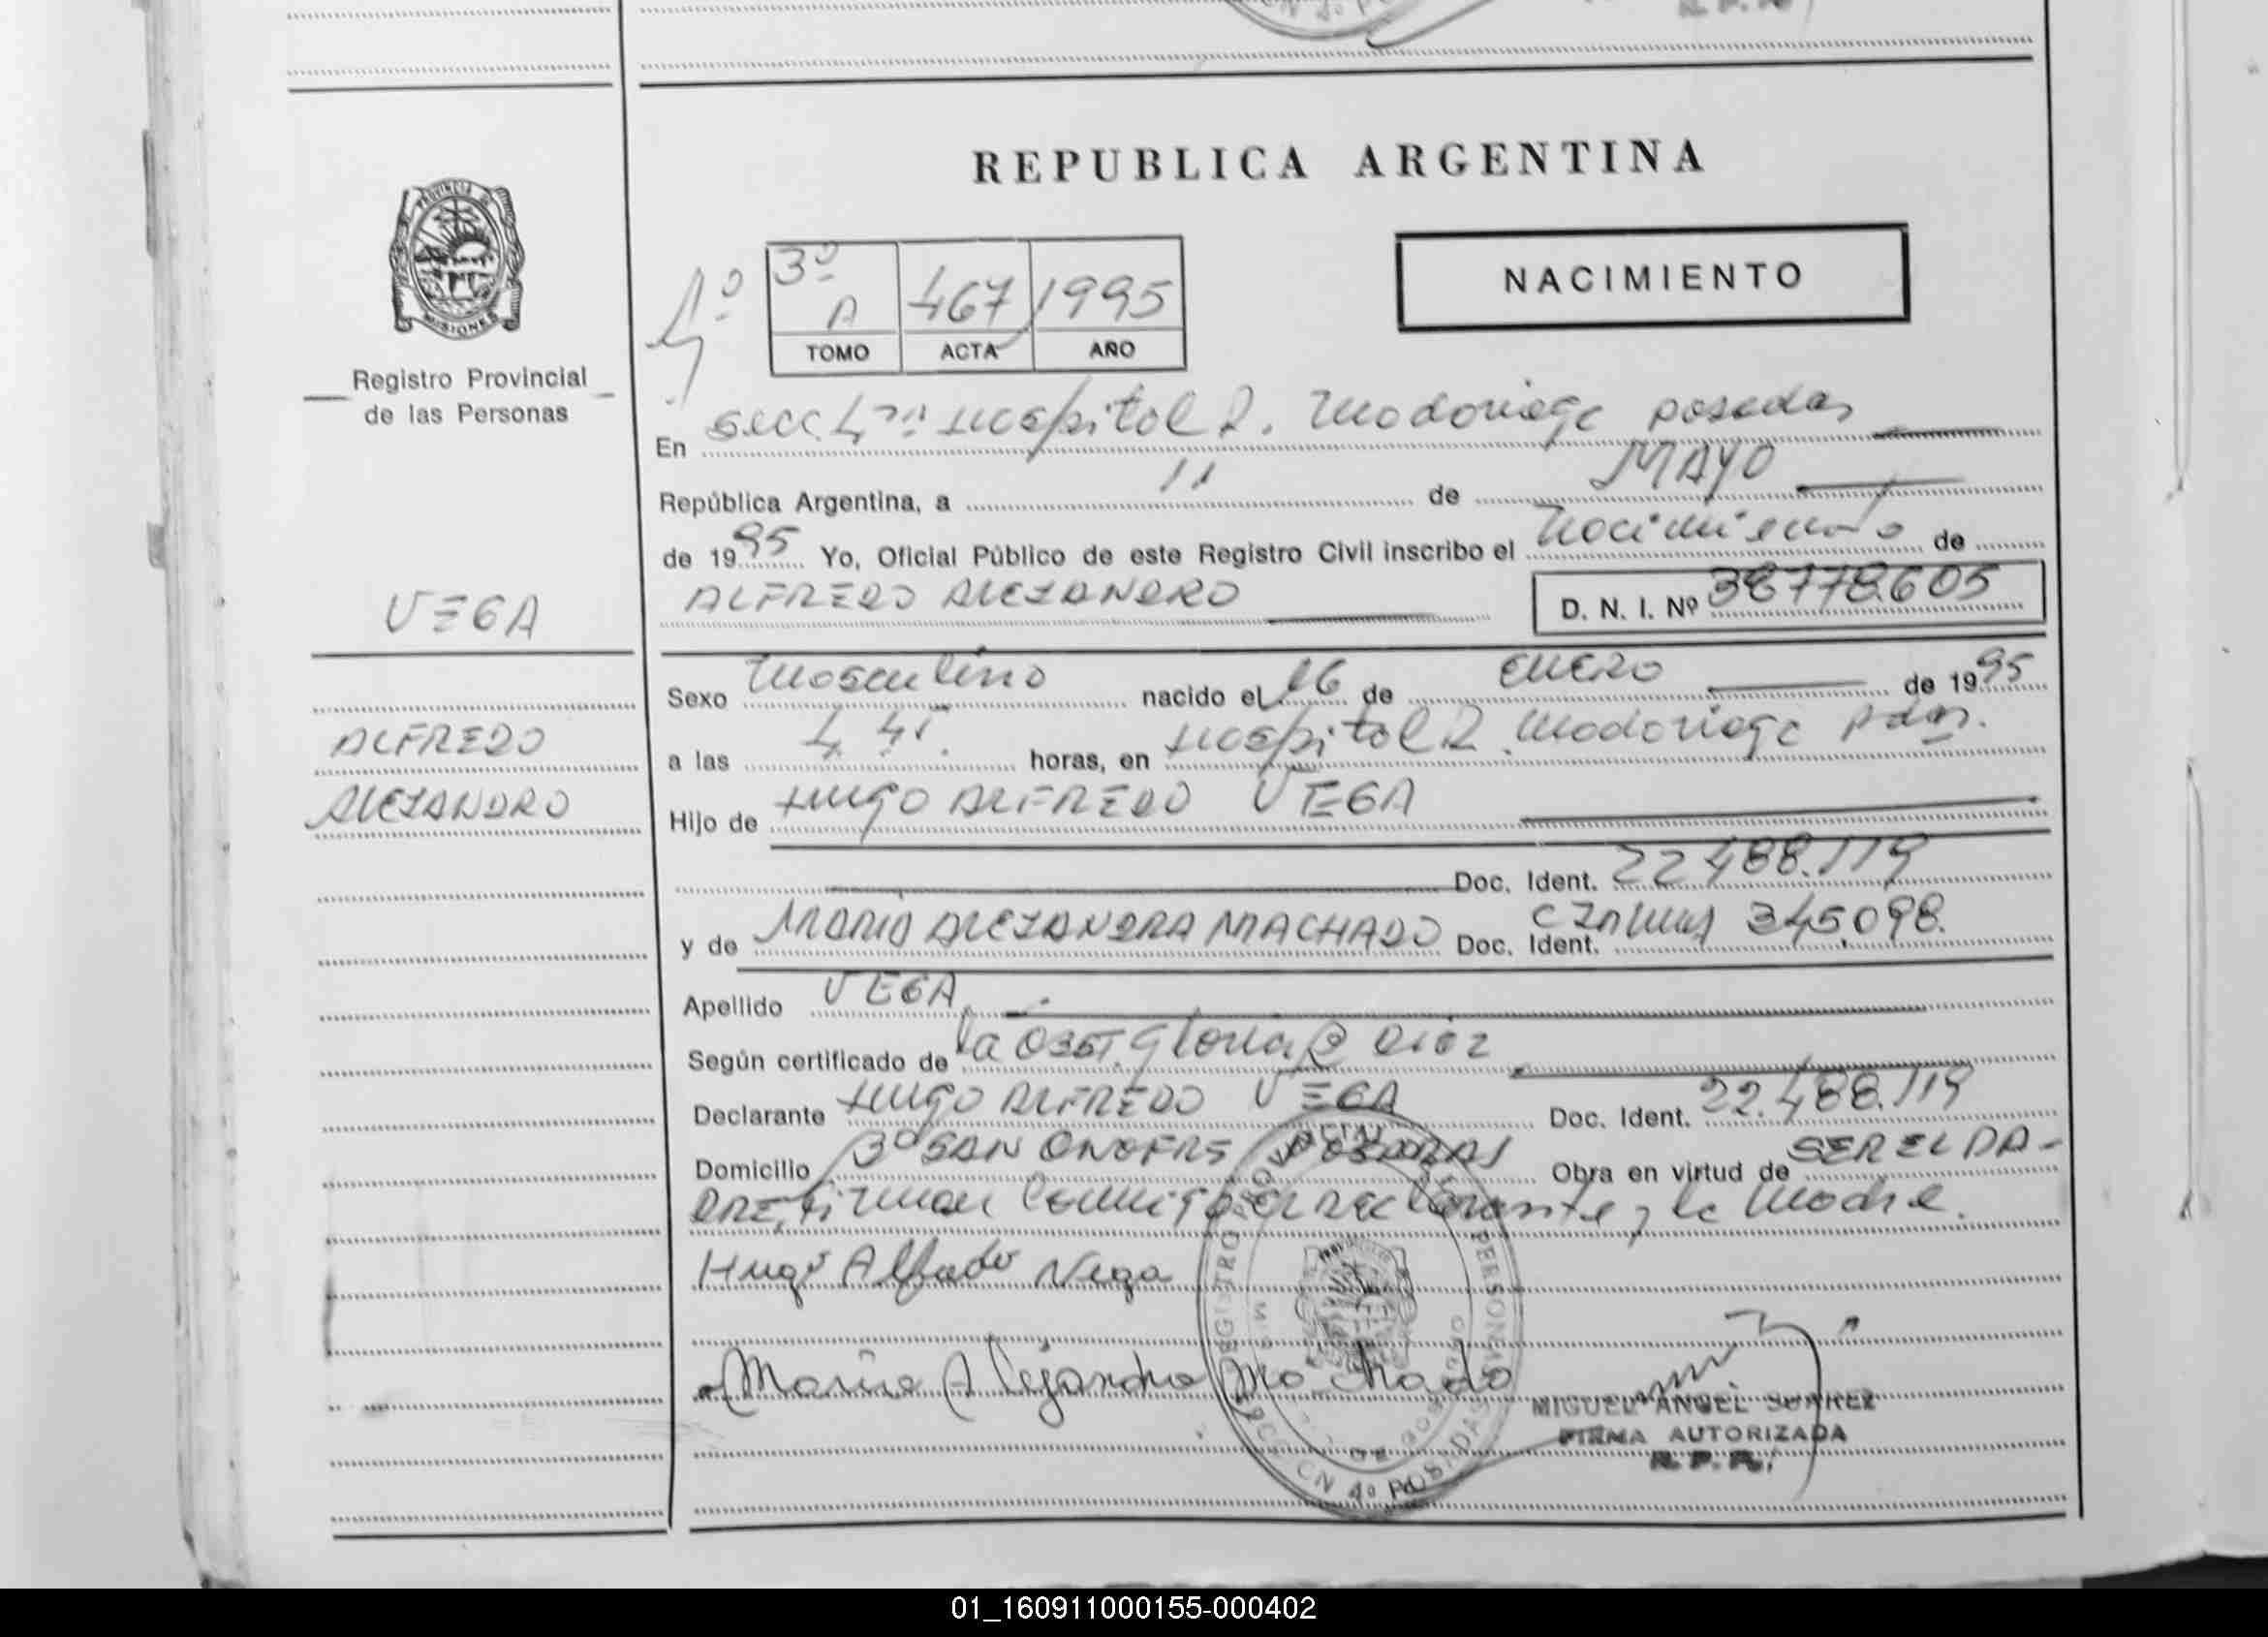 REPUBLICA ARGENTINA
PROVINCIA DE
MISIONES
Registro Provincial
de las Personas
NACIMIENTO
4º
3º
A 467 1995
TOMO ACTA AÑO
En Secc. 4ta Hospital R. Madariaga Posadas
República Argentina, a 11 de MAYO
de 1995 Yo, Oficial Público de este Registro Civil inscribo el Nacimiento de
ALFREDO ALEJANDRO D. N. I. Nº 38778605
VEGA
ALFREDO
ALEJANDRO
Sexo Masculino nacido el 16 de ENERO de 1995
a las horas, en Hospital R. Madariaga Pdas.
Hijo de HUGO ALFREDO VEGA
Doc. Ident. 22.488.119
y de MARIA ALEJANDRA MACHADO Doc. Ident. 345.098.
Apellido VEGA
Según certificado de la OBST. Gloria Diez
Declarante HUGO ALFREDO VEGA Doc. Ident. 22.488.119
Domicilio SAN ONOFRE POSADAS Obra en virtud de SER EL PA-
DRE, firman conmigo el declarante y la madre.
Hugo Alfredo Vega
Maria Alejandra Machado
MIGUEL ANGEL SUAREZ
FIRMA AUTORIZADA
R. P. P.
01_160911000155-000402